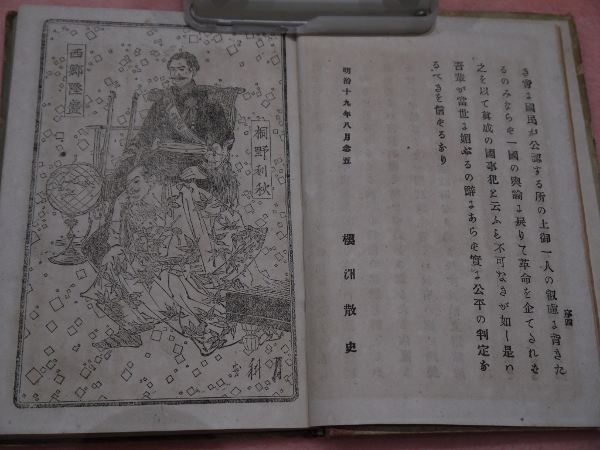 序四
き啻に國民が公認する所の上御一人の叡慮に背きた
るのみならを一國の輿論に戻りて革命を企てされを
之を以て眞成の國事犯と云ふも不可なきが如し是れ
吾輩が當世に媚ぶるの辭にあらを實に公平の判定な
るべきを信をるなり
明治十九年八月念五
櫻洲散史
西郷隆盛
桐野利秋